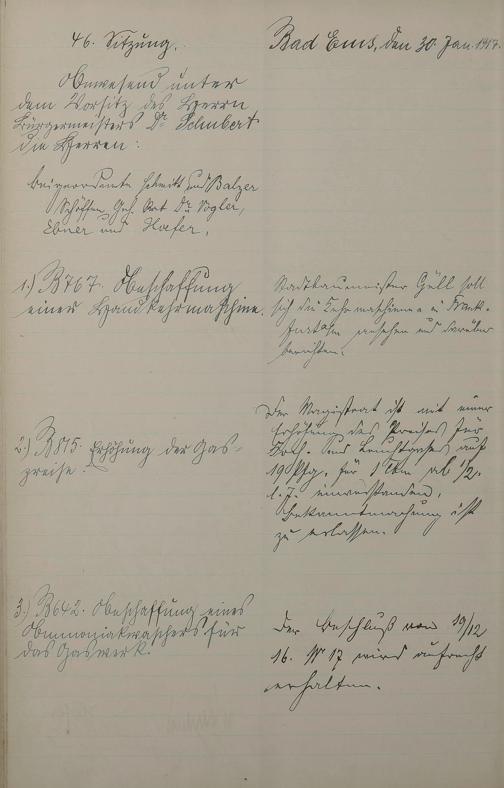 46. Sitzung.
Bad Ems, den 30. Jan. 1917.
Anwesend unter
dem Vorsitz des Herrn
Bürgermeisters Dr. Schubert
die Herren:
Beigeordnete Schmitt und Balzer
Schöffen, Geh. Rat Dr. Vogler,
Ebner und Hofer.
1.) B767. Beschaffung
einer Handkehrmaschine.
Stadtbaumeister Güll soll
sich die Kehrmaschinen in Frank-
furt a/m ansehen und darüber
berichten.
2.) B815. Erhöhung der Gas-
preise.
Der Magistrat ist mit einer
Erhöhung des Preises für
Koch- und Leuchtgas auf
19 Pfg. für 1 cbm ab 1/2.
l. J. einverstanden.
Bekanntmachung ist
zu erlassen.
3.) B642. Beschaffung eines
Ammoniakwaschers für
das Gaswerk.
Der Beschluß vom 19/12
16. No 17 wird aufrecht
erhalten.